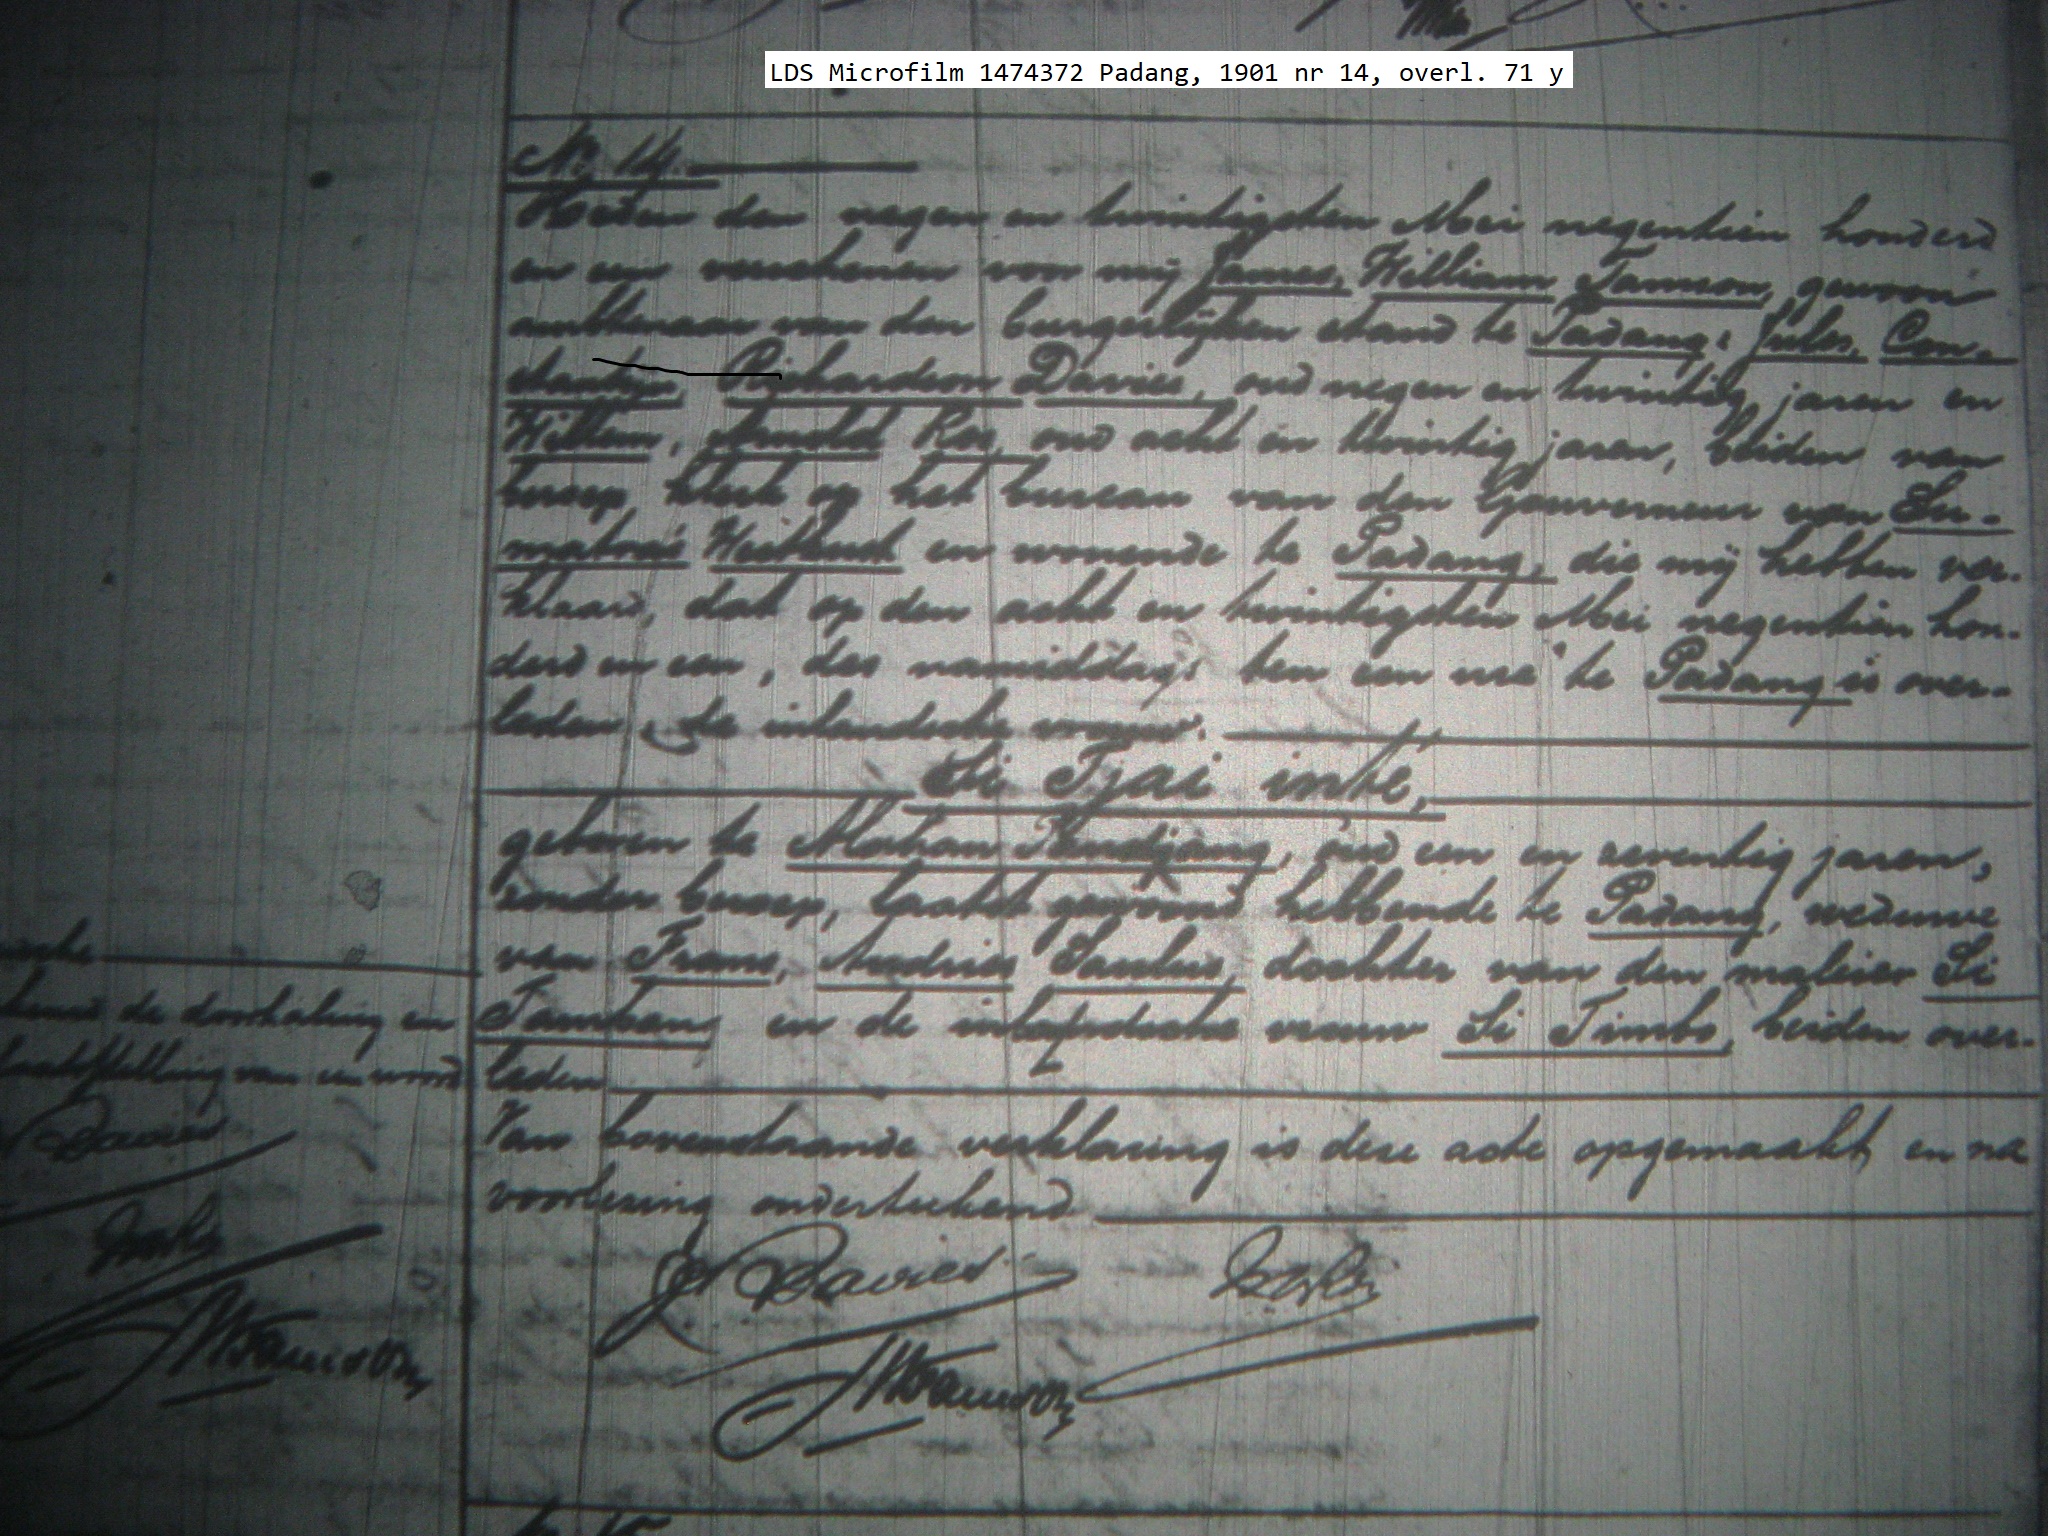 LDS Microfilm 1474372 Padang, 1901 nr 14, overl. 71 y
No. 14.
Heden den negen en twintigsten Mei negentien honderd
en een verschenen voor mij James, William Tamson, gewoon
ambtenaar van den burgerlijken stand te Padang: Jules, Con-
stantijn, Richardson Davies, oud negen en twintig jaren en
Willem, Arnold Ros, oud acht en twintig jaren, beiden van
beroep klerk op het bureau van den Gouverneur van Su-
matra's Westkust en wonende te Padang, die mij hebben ver-
klaard, dat op den acht en twintigsten Mei negentien hon-
derd en een, des namiddags ten een ure te Padang is over-
leden, de inlandsche vrouw.
Si Tjai inte,
geboren te Moeham Pandjang, oud een en zeventig jaren,
zonder beroep, laatst gewoond hebbende te Padang, weduwe
van Frans, Andries dochter van den maleier Si
Tambang en de inlandsche vrouw Si Timbo, beiden over-
leden
Van bovenstaande verklaring is deze acte opgemaakt en na
voorlezing onderteekend
Davies
JWTamson
de doorhaling en
van een woord
Davies
JWTamson